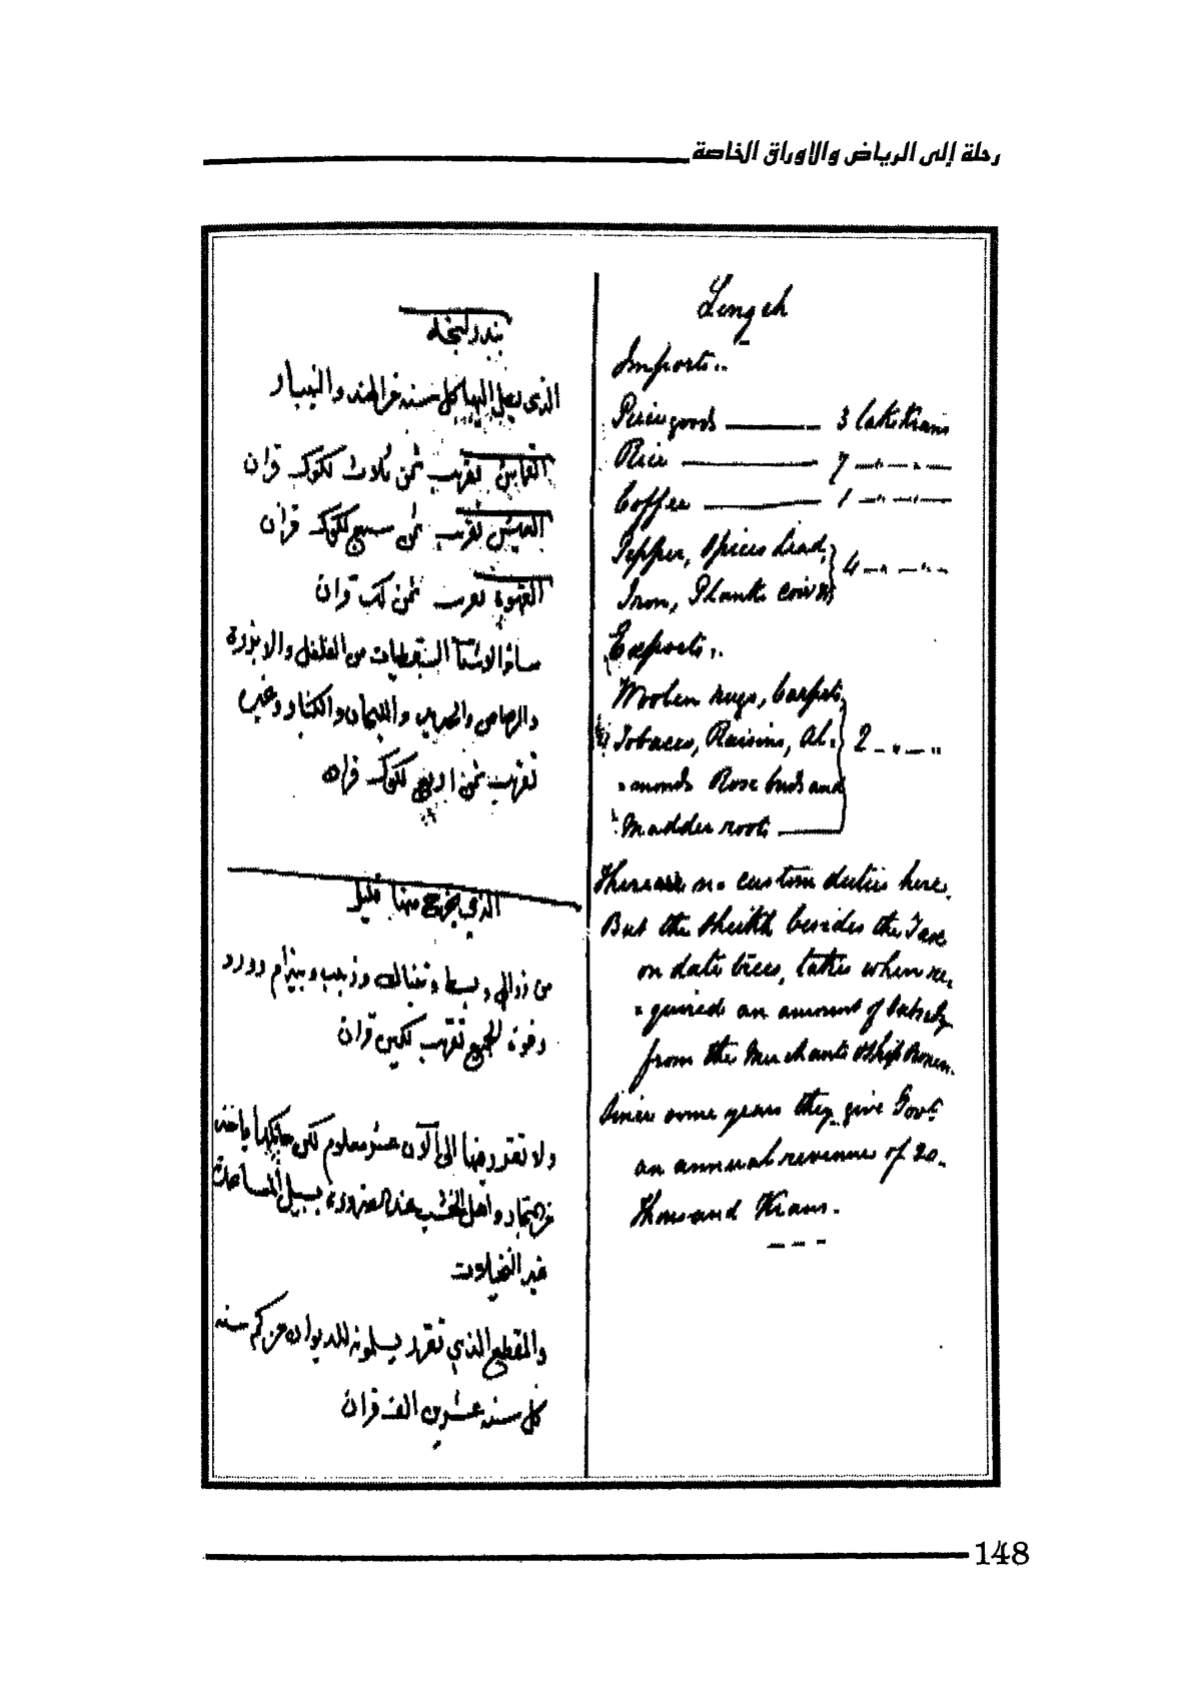 رحلة إلى الرياض والاوراق الخاصة
بندر لنجه
الذي يصل إليها كل سنه من الهند والنيبار
القماش تقريب ثمن ثلاث لكوك قران
العيش تقريب ثمن سبع لكوك قران
القهوة تقريب ثمن لك قران
سائر الاشيآ السقطيات من الفلفل والابزرة
والرصاص والحديد و والكنبار وغيره
تقريب ثمن اربع لكوك قران
الذي يخرج منها قليل
من زوالي وبسط وتنباك وزبيب وبيذام وورد
وفوه الجميع تقريب لكين قران
ولا تقرر فيها الى الآن عشر معلوم لكن حاكمها ياخذ
من التجار واهل الخشب عند الضرورة بسبيل المساعدة
غير النخيلات
والمقطع الذي تقرر يسلمونه للديوان من كم سنه
كل سنه عشرين الف قران
Lengeh
Imports..
Piecegoods ——— 3 lakskrans
Rice ——— 7 —"—"—
Coffee ——— 1 —"—"—
Pepper, Spices Lead, } 4 —"—"—
Iron, Planks coir &
Exports..
Woolen rugs, Carpets,
Tobacco, Raisins, Al- } 2 —"—"
-monds Rose buds and
Madder roots ———
There are no custom duties here.
But the Sheikh besides the Tax
on date trees, takes when re-
-quired an amount of
from the Merchants & Ship Owners.
Since some years they give Govt.
an annual revenue of 20.
thousand Krans.
148